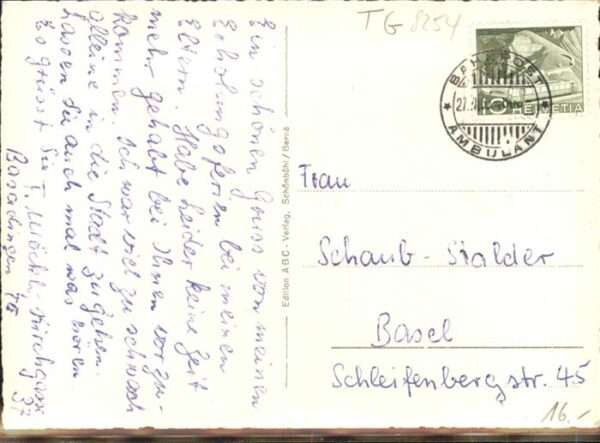 Ein schönen Gruss von meinen
Erholungsferien bei meinen
Eltern. Habe leider keine Zeit
mehr gehabt bei Ihnen vorzu-
kommen. Ich war viel zu schwach
alleine in die Stadt zu gehen.
Lassen Sie auch mal was hören
Es grüsst Sie
Kirchgasse
37
Basadingen TG
Edition ABC-Verlag, Schönbühl / Berne
TG 8254
BAHNPOST
AMBULANT
HELVETIA
Frau
Schaub-Stalder
Basel
Schleifenbergstr. 45
16.-